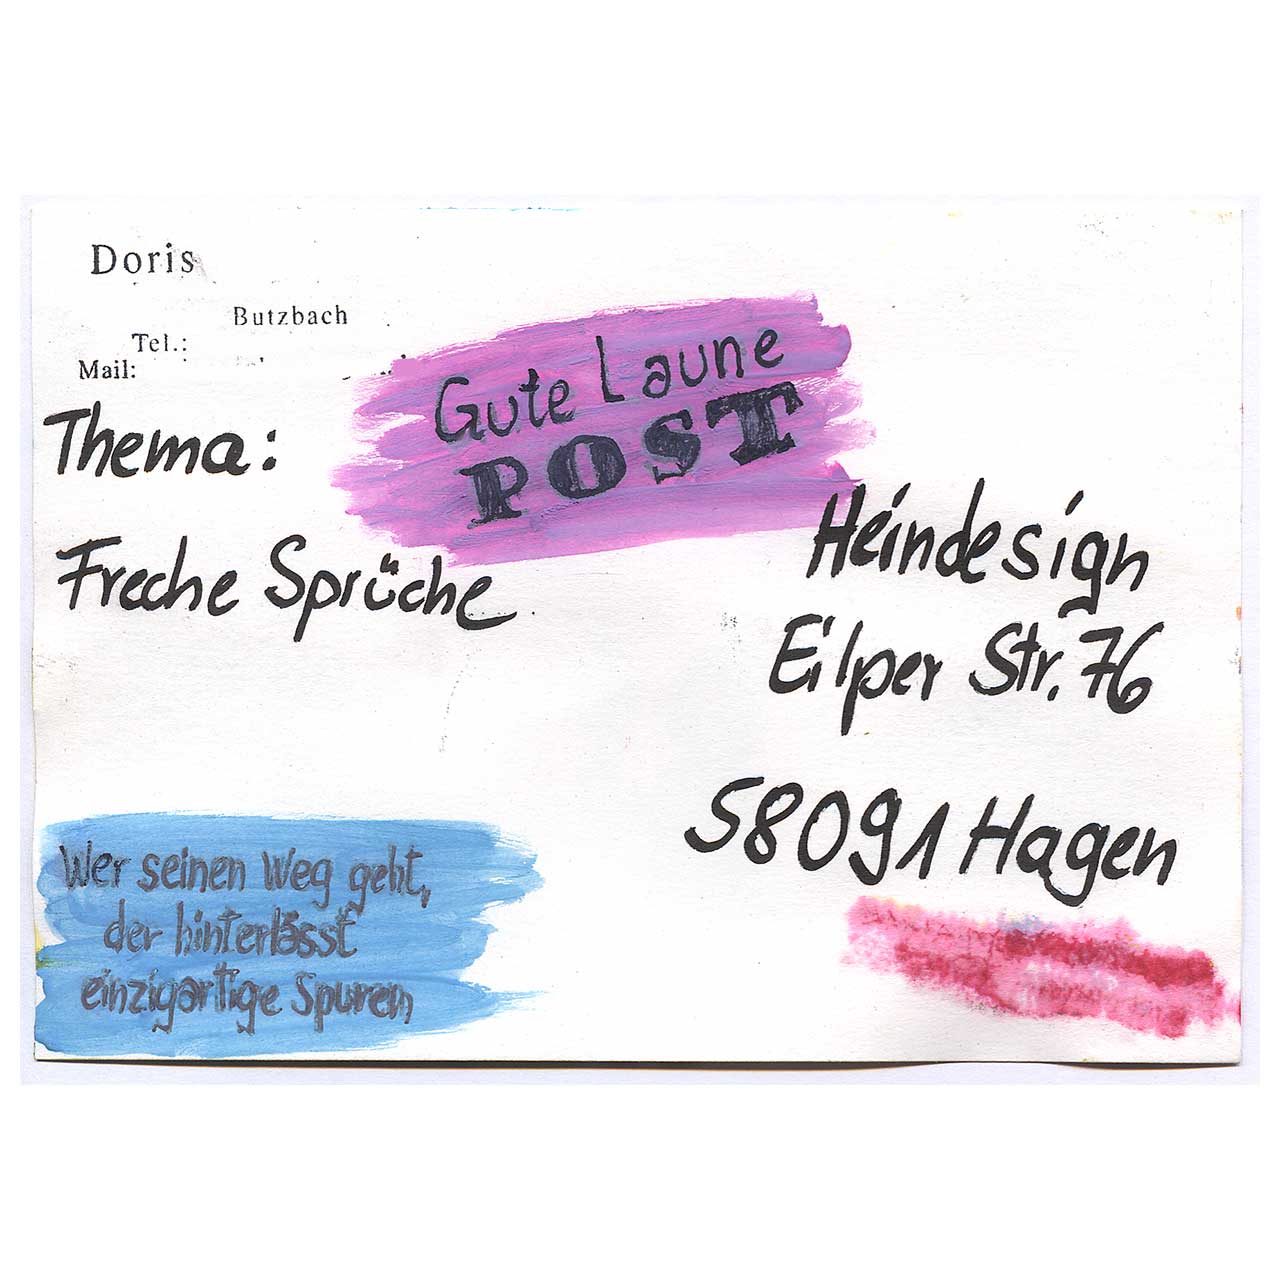 Doris
Butzbach
Tel.:
Mail:
Gute Laune
POST
Thema:
Freche Sprüche
Heindesign
Eilper Str. 76
58091 Hagen
Wer seinen Weg geht,
der hinterlässt
einzigartige Spuren